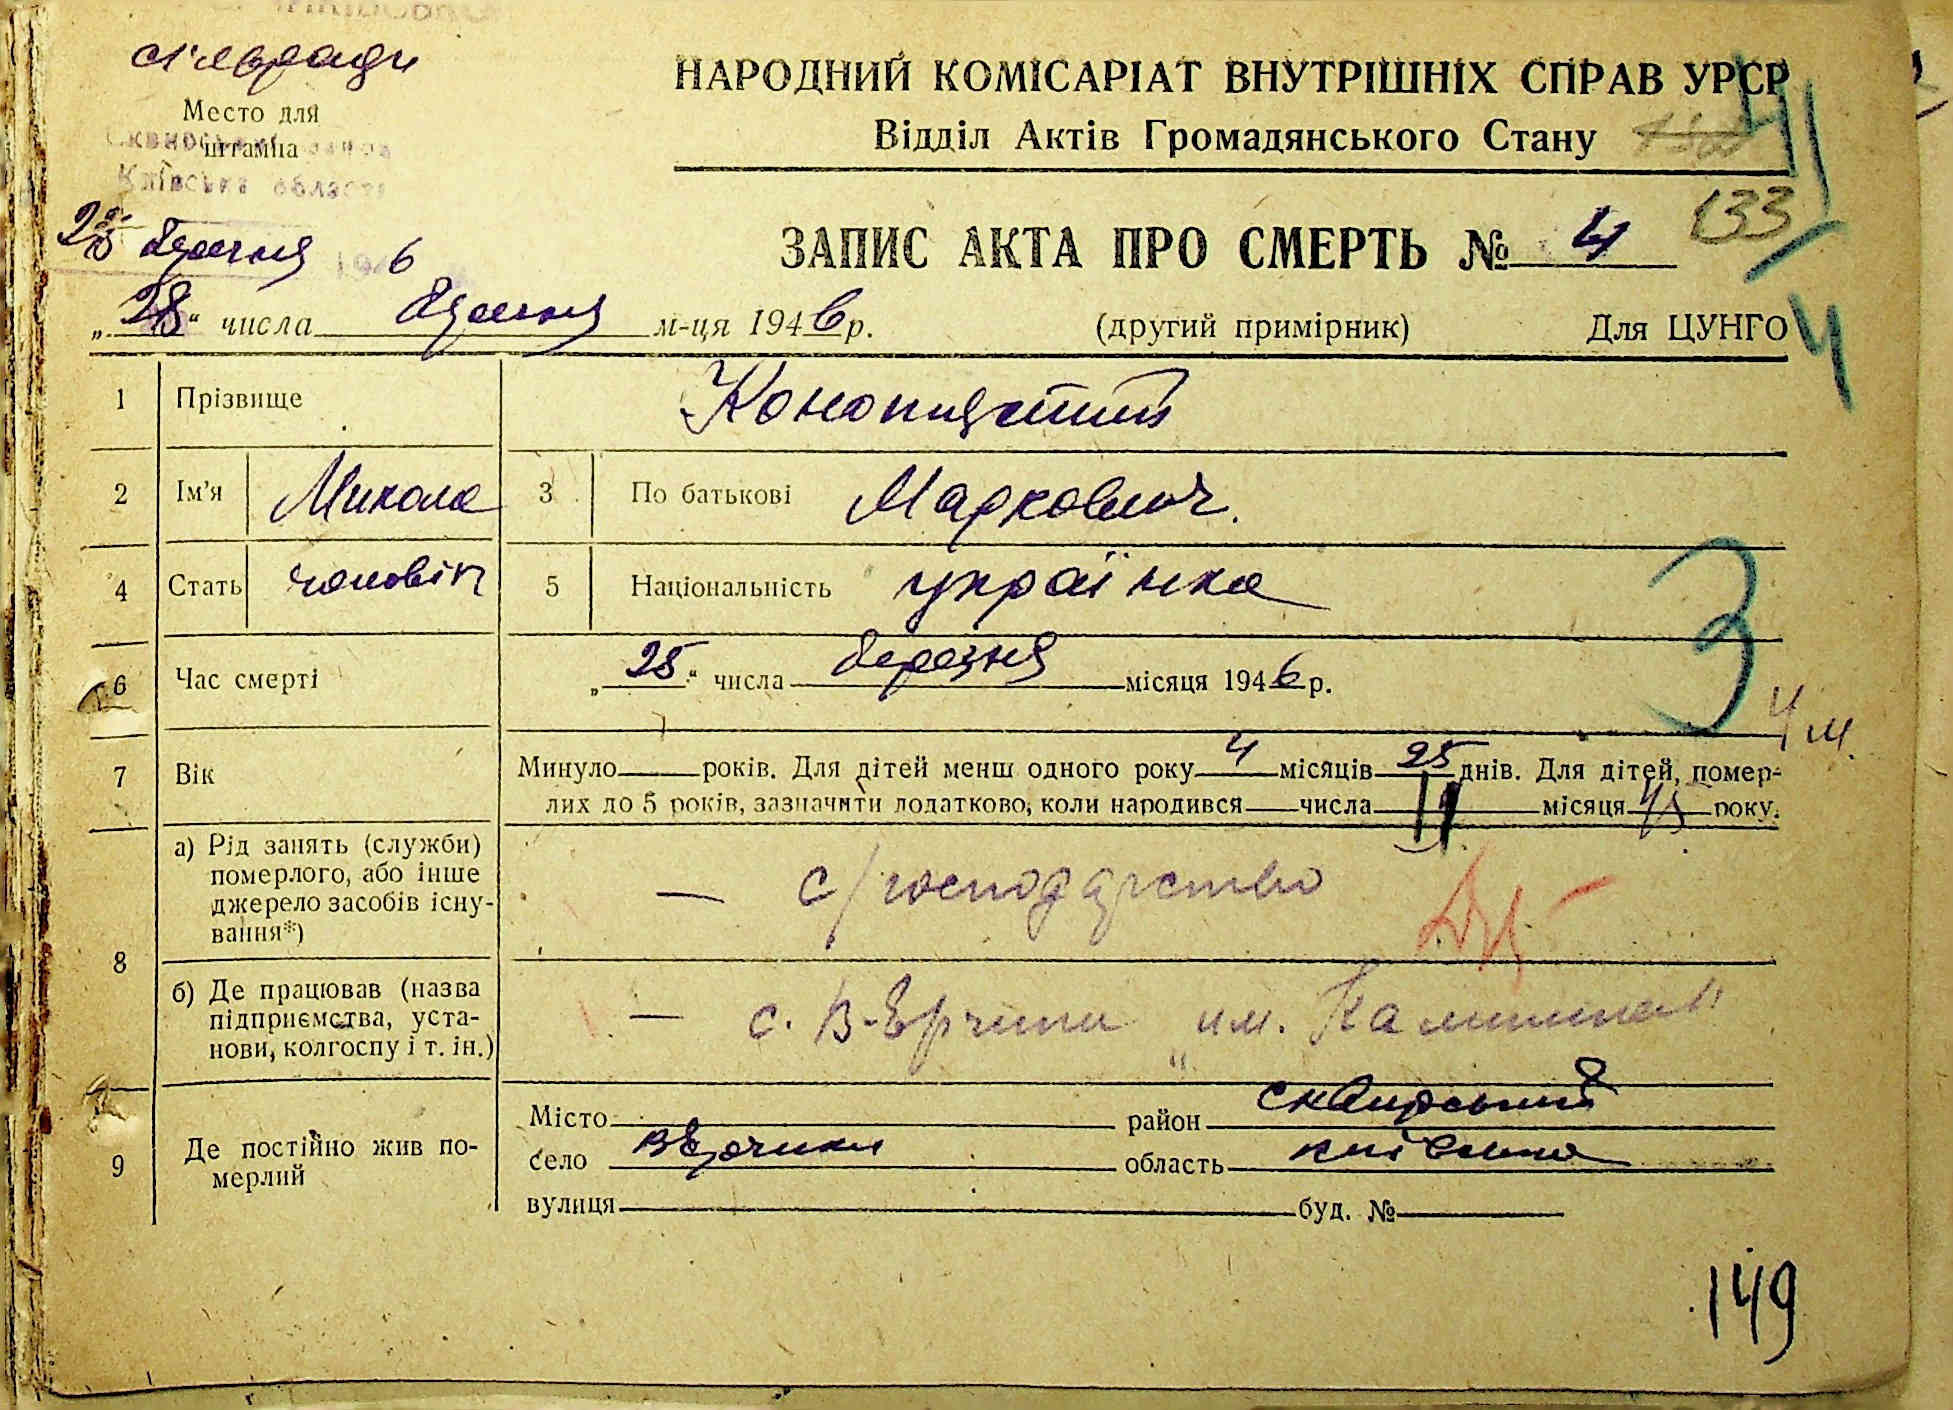 сільради
Место для
штампа
Київська області
25 березня 1946
НАРОДНИЙ КОМІСАРІАТ ВНУТРІШНІХ СПРАВ УРСР
Відділ Актів Громадянського Стану
133
ЗАПИС АКТА ПРО СМЕРТЬ № 4
„28" числа березня м-ця 1946 р. (другий примірник) Для ЦУНГО
4
1 Прізвище Конопястий
2 Ім'я Микола 3 По батькові Маркович.
4 Стать чоловік 5 Національність українка
3
6 Час смерті „25" числа березня місяця 1946 р.
4 м.
7 Вік Минуло років. Для дітей менш одного року 4 місяців 25 днів. Для дітей, помер-
лих до 5 років, зазначити додатково, коли народився числа 11 місяця 45 року.
8 а) Рід занять (служби)
померлого, або інше
джерело засобів існу-
вання*)
— с/господарство
б) Де працював (назва
підприємства, уста-
нови, колгоспу і т. ін.)
— с. В-Єрчики „им. Калинина"
9 Де постійно жив по-
мерлий
Місто район Сквирський
село В Єрчики область київська
вулиця буд. №
149